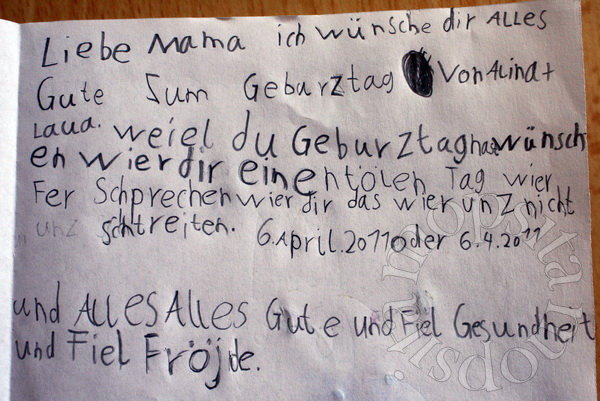 Liebe Mama ich wünsche dir ALLES
Gute Zum Geburztag Von Alina +
Laua. weiel du Geburztag hast wünsch
en wier dir einen tölen Tag wier
Fer Schprechen wier dir das wier unz nicht
unz schtreiten. 6.April.2011 oder 6.4.2011
und ALLES Alles Gute und Fiel Gesundheit
und Fiel Fröjde.